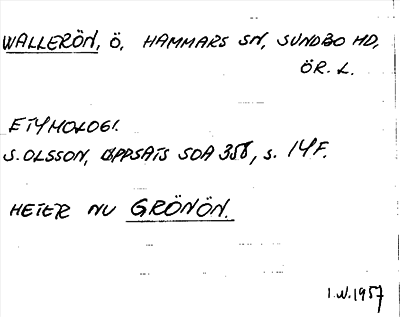 WALLERÖN, Ö, HAMMARS SN, SUNDBO HD,
ÖR. L.
ETYMOLOGI.
S. OLSSON, UPPSATS SOA 358, s. 14 F.
HETER NU GRÖNÖN.
I.W.1957